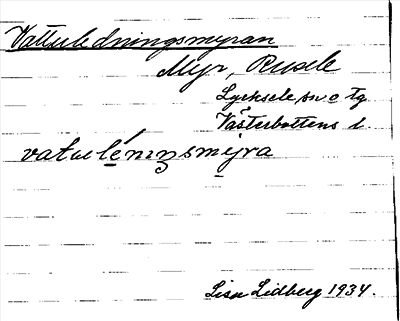 Vattuledningsmyran
Myr, Rusele
Lycksele sn o tg
Västerbottens l.
vatuléninsmyra
Lisa Lidberg 1934.